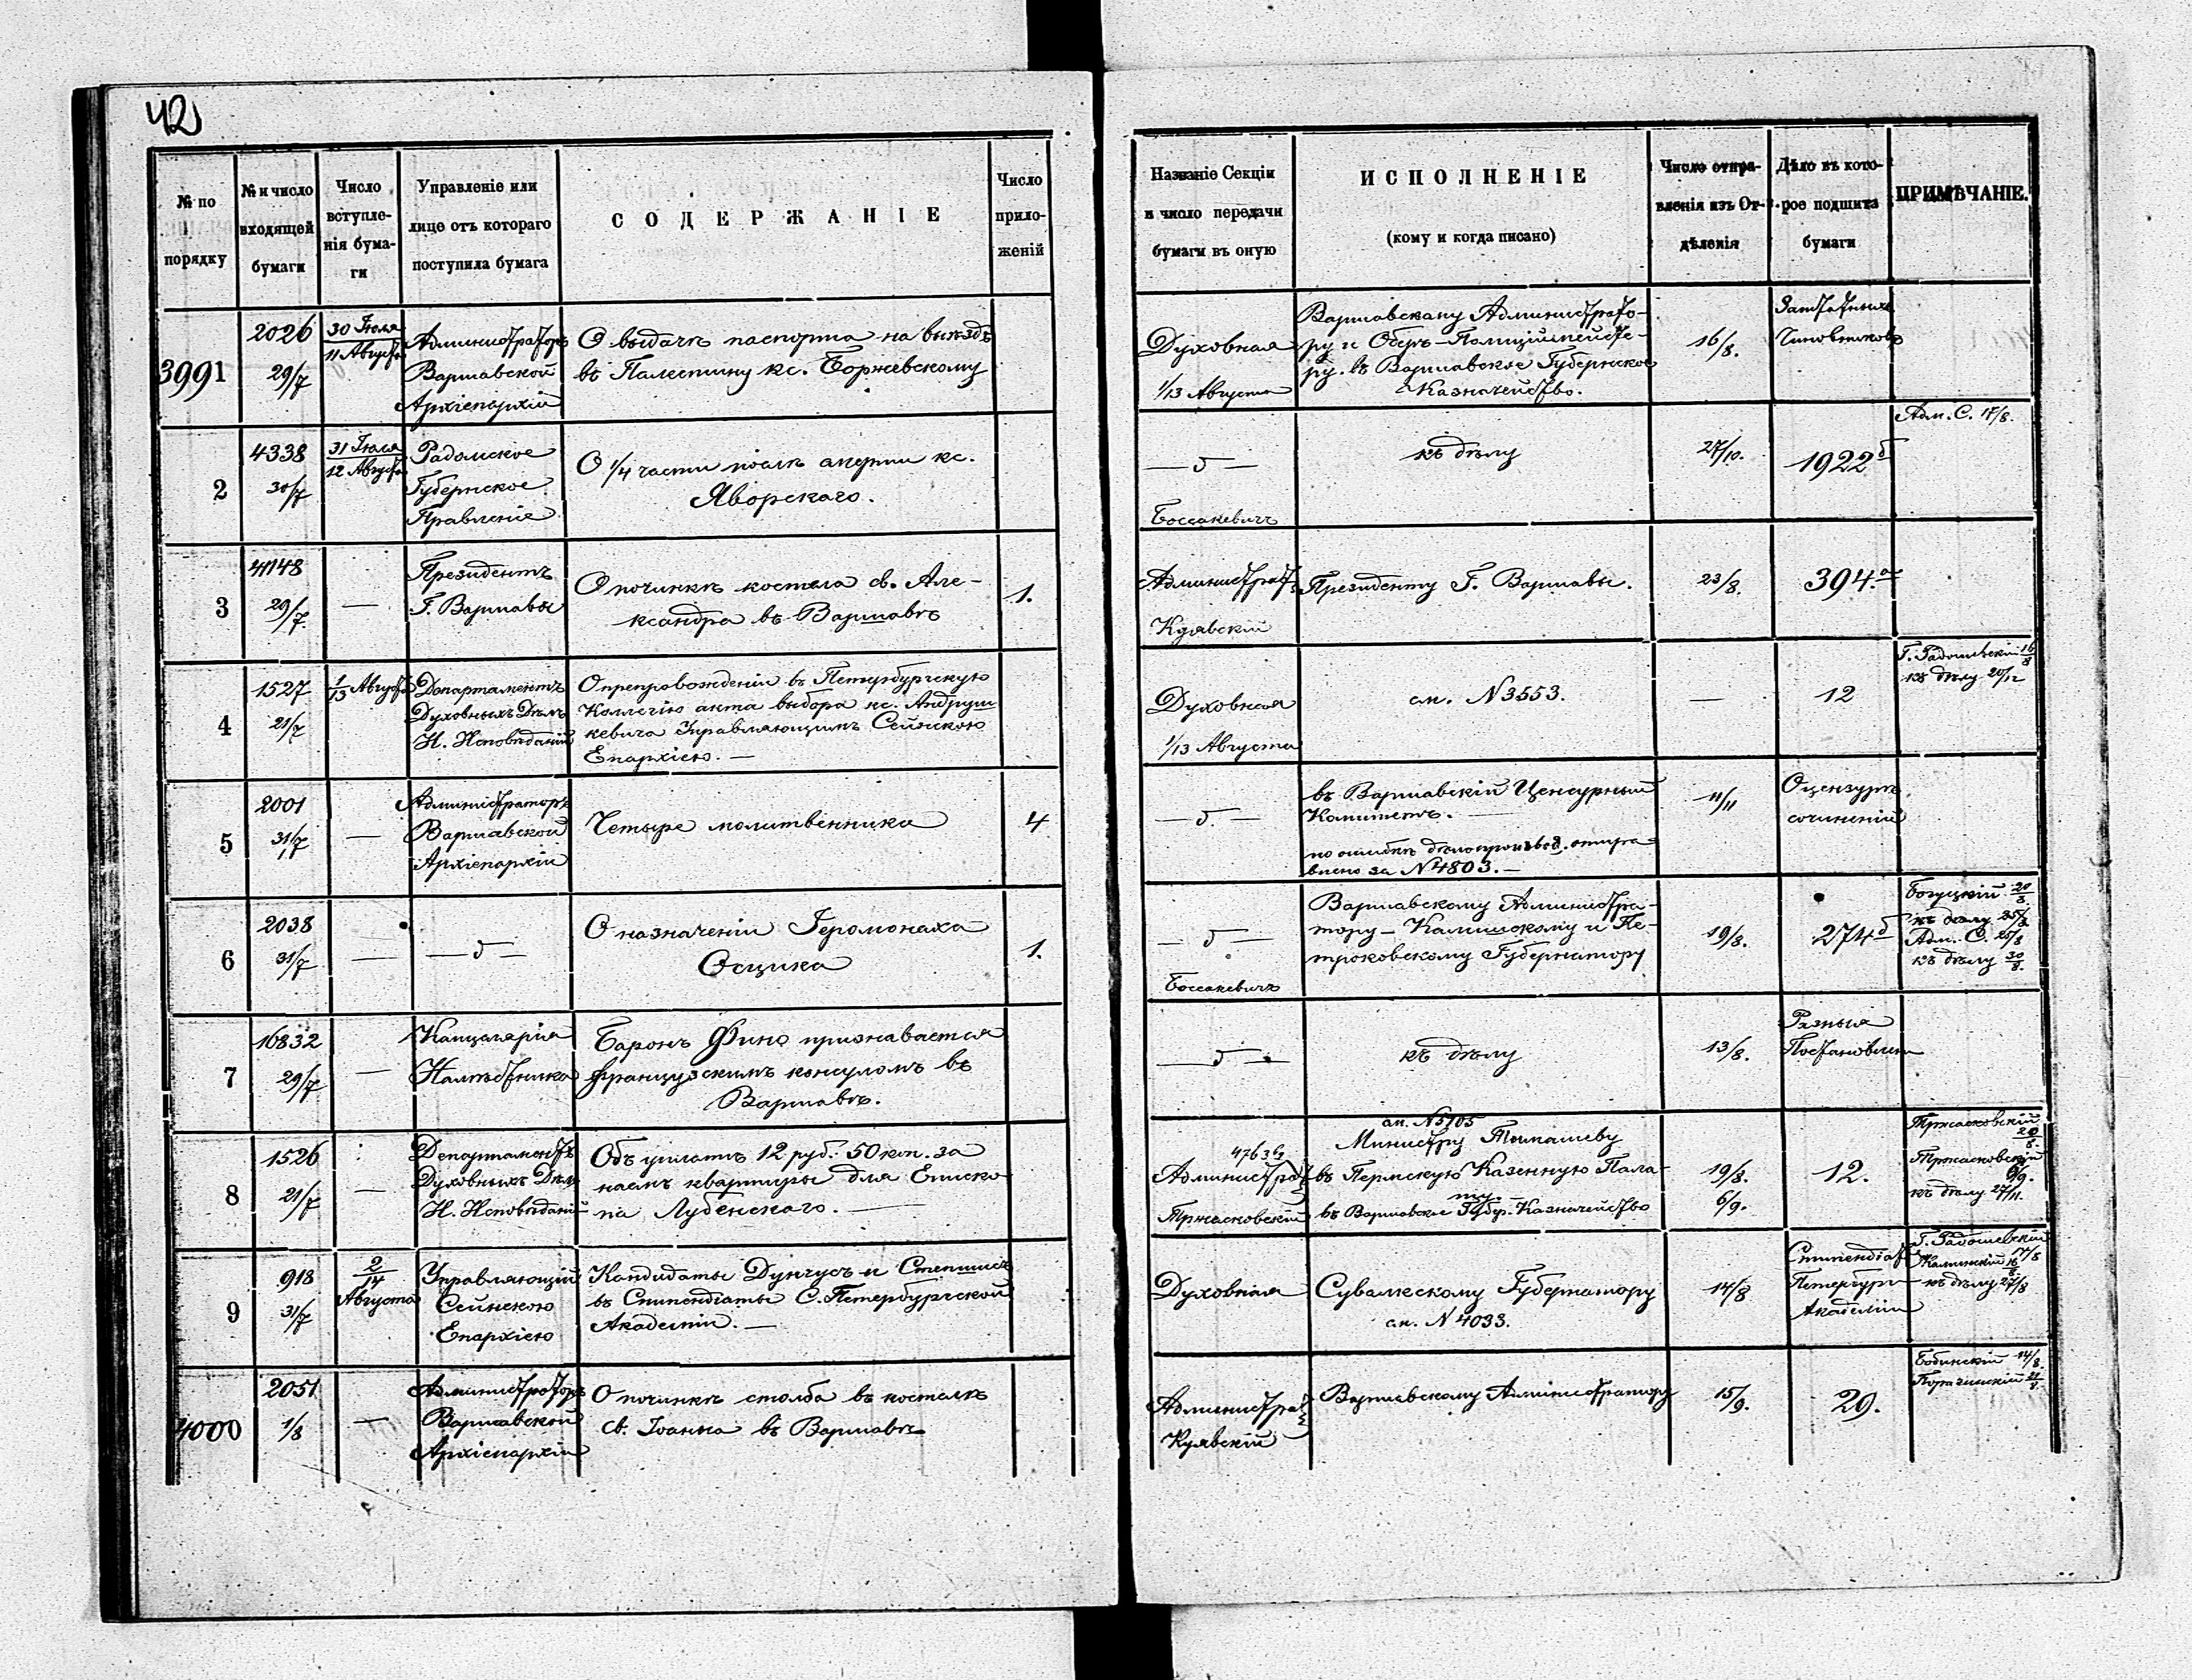 42
№ по порядку
№ и число входящей бумаги
Число вступле- нія бума- ги
Управленіе или лице отъ котораго поступила бумага
СОДЕРЖАНІЕ
Число прило- женій
Названіе Секціи и число передачи бумаги въ оную
ИСПОЛНЕНІЕ
(кому и когда писано)
Число отпра- вленія изъ От- дѣленія
Дѣло въ кото- рое подшита бумаги
ПРИМѢЧАНІЕ.
3991
2026
29/7
30 Іюля
11 Августа
Администраторъ
Варшавской
Архіепархіи
О выдачѣ паспорта на выѣздъ
въ Палестину кс. Боржевскому
Духовная
1/13 Августа
Варшавскому Администрато-
ру и Оберъ-Полиціймейсте-
ру. въ Варшавское Губернское
Казначейство.
16/8.
Чиновниковъ
2
4338
30/7
31 Іюля
12 Августа
Радомское
Губернское
Правленіе
О 1/4 части послѣ смерти кс.
Яворскаго.
— б —
Боссакевичъ
къ дѣлу
27/10.
1922 б
Адм. С. 17/8.
3
41148
29/7.
—
Президентъ
Г. Варшавы
О починкѣ костела св. Але-
ксандра въ Варшавѣ
1.
Администрат.
Куявскій
Президенту Г. Варшавы.
23/8.
394. а
4
1527
21/7
1/13 Августа
Департаментъ
Духовныхъ Дѣлъ
И. Исповѣданій
О препровожденіи въ Петербургскую
Коллегію акта выбора кс. Андруш
кевича Управляющимъ Сейнскою
Епархіею. —
Духовная
1/13 Августа
см. N 3553.
—
12
Г. Радошевскій 16/8
къ дѣлу 20/12
5
2001
31/7
—
Администраторъ
Варшавской
Архіепархіи
Четыре молитвенника
4
— б. —
въ Варшавскій Ценсурный
Комитетъ. —
по ошибкѣ дѣлопроизвод. отпра
влено за N 4803. —
11/11
О цензурѣ
сочиненій
6
2038
31/7
—
— б —
О назначеніи Іеромонаха
Осцика
1.
— б —
Боссакевичъ
Варшавскому Администра-
тору — Калишскому и Пе-
троковскому Губернатору
19/8.
274 б
Богуцкій 20/8
къ дѣлу 25/8
Адм. С. 25/8
къ дѣлу 30/8.
7
16832
29/7
—
Канцелярія
Намѣстника
Баронъ Фино признавается
французскимъ консуломъ въ
Варшавѣ.
— б —
къ дѣлу
13/8.
Разныя
Постановленія
8
1526
21/7
—
Департаментъ
Духовныхъ Дѣлъ
И. Исповѣданій
Объ уплатѣ 12 руб. 50 коп. за
наемъ квартиры для Еписко-
па Лубенскаго. —
Администрат.
Тржасковскій
см. N 5105
Министру Тимашеву
въ Пермскую Казенную Пала-
ту. —
въ Варшавское Губер. Казначейство
19/8.
6/9.
12.
Тржасковскій
20/8.
Тржасковскій
6/9.
къ дѣлу 27/11.
9
918
31/7
2/14
Августа
Управляющій
Сейнскою
Епархіею
Кандидаты Дунчусъ и Степшисъ
въ Стипендіаты С. Петербургской
Академіи. —
Духовная
Сувалкскому Губернатору
см. N 4033.
14/8
Стипендіат
Петербург
Академіи
Г. Радошевскій
14/8
къ дѣлу 27/8
4000
2051
1/8
—
Администраторъ
Варшавской
Архіепархіи
О починкѣ столба въ костелѣ
св. Іоанна въ Варшавѣ
Администрац.
Куявскій
Варшавскому Администратору
15/9.
29.
Бобинскій 14/8.